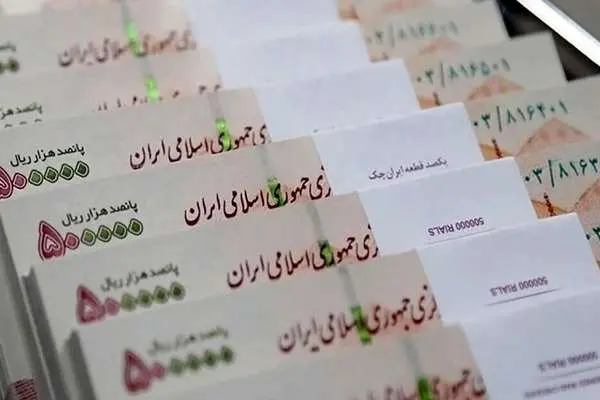 جمهوری اسلامی ایران
۰۳/۸۱۶۵۰۱
پانصد هزار ریال
۵۰۰۰۰۰
جمهوری اسلامی ایران
۰۳/۸۱۶۴۰۱
یکصد قطعه ایران چک
پانصد هزار ریال
۵۰۰۰۰۰
زی جمهوری اسلامی ایران
500000 RIALS
پانصد هزار ریال
۵۰۰۰۰۰
زی جمهوری اسلامی ایران
500000 RIALS
پانصد هزار ریال
۵۰۰۰۰۰
زی جمهوری اسلامی ایران
500000 RIALS